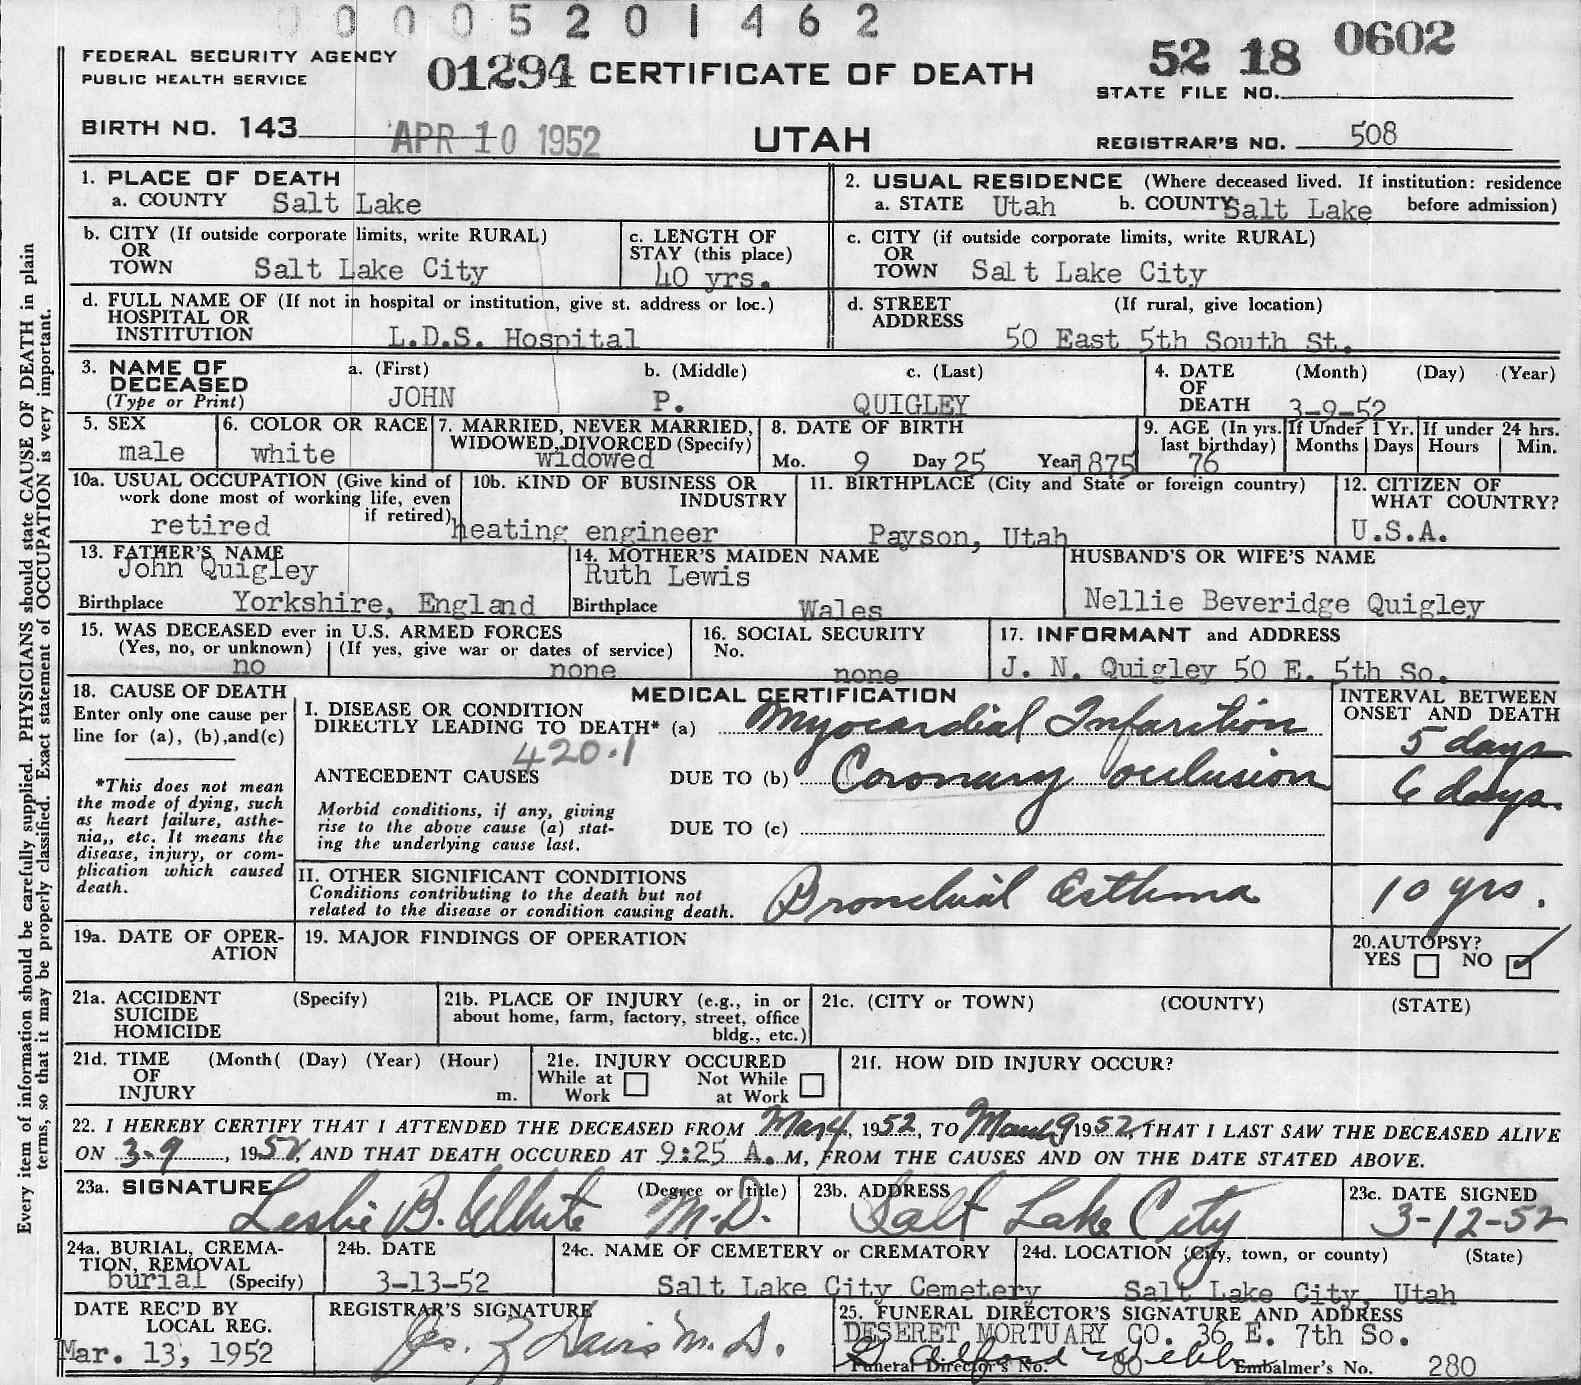 0 0 0 5 2 0 1 4 6 2
FEDERAL SECURITY AGENCY
PUBLIC HEALTH SERVICE
01294 CERTIFICATE OF DEATH
52 18 0602
STATE FILE NO.
BIRTH NO. 143
APR 10 1952
UTAH
REGISTRAR'S NO. 508
1. PLACE OF DEATH
a. COUNTY Salt Lake
2. USUAL RESIDENCE (Where deceased lived. If institution: residence
a. STATE Utah b. COUNTY Salt Lake before admission)
b. CITY (If outside corporate limits, write RURAL)
OR
TOWN Salt Lake City
c. LENGTH OF
STAY (this place)
40 yrs.
c. CITY (if outside corporate limits, write RURAL)
OR
TOWN Salt Lake City
d. FULL NAME OF (If not in hospital or institution, give st. address or loc.)
HOSPITAL OR
INSTITUTION L.D.S. Hospital
d. STREET (If rural, give location)
ADDRESS
50 East 5th South St.
3. NAME OF
DECEASED
(Type or Print)
a. (First) b. (Middle) c. (Last)
JOHN P. QUIGLEY
4. DATE (Month) (Day) (Year)
OF
DEATH 3-9-52
5. SEX
male
6. COLOR OR RACE
white
7. MARRIED, NEVER MARRIED,
WIDOWED, DIVORCED (Specify)
widowed
8. DATE OF BIRTH
Mo. 9 Day 25 Year 1875
9. AGE (In yrs.
last birthday)
76
If Under 1 Yr.
Months Days
If under 24 hrs.
Hours Min.
10a. USUAL OCCUPATION (Give kind of
work done most of working life, even
if retired)
retired
10b. KIND OF BUSINESS OR
INDUSTRY
heating engineer
11. BIRTHPLACE (City and State or foreign country)
Payson, Utah
12. CITIZEN OF
WHAT COUNTRY?
U.S.A.
13. FATHER'S NAME
John Quigley
Birthplace Yorkshire, England
14. MOTHER'S MAIDEN NAME
Ruth Lewis
Birthplace Wales
HUSBAND'S OR WIFE'S NAME
Nellie Beveridge Quigley
15. WAS DECEASED ever in U.S. ARMED FORCES
(Yes, no, or unknown) (If yes, give war or dates of service)
no none
16. SOCIAL SECURITY
No.
none
17. INFORMANT and ADDRESS
J. N. Quigley 50 E. 5th So.
18. CAUSE OF DEATH
Enter only one cause per
line for (a), (b),and(c)
*This does not mean
the mode of dying, such
as heart failure, asthe-
nia,, etc. It means the
disease, injury, or com-
plication which caused
death.
MEDICAL CERTIFICATION
I. DISEASE OR CONDITION
DIRECTLY LEADING TO DEATH* (a) Myocardial Infarction
420.1
ANTECEDENT CAUSES DUE TO (b) Coronary occlusion
Morbid conditions, if any, giving
rise to the above cause (a) stat-
ing the underlying cause last.
DUE TO (c)
INTERVAL BETWEEN
ONSET AND DEATH
5 days
6 days
II. OTHER SIGNIFICANT CONDITIONS
Conditions contributing to the death but not
related to the disease or condition causing death.
Bronchial Asthma
10 yrs.
19a. DATE OF OPER-
ATION
19. MAJOR FINDINGS OF OPERATION
20. AUTOPSY?
YES NO
21a. ACCIDENT (Specify)
SUICIDE
HOMICIDE
21b. PLACE OF INJURY (e.g., in or
about home, farm, factory, street, office
bldg., etc.)
21c. (CITY or TOWN) (COUNTY) (STATE)
21d. TIME (Month( (Day) (Year) (Hour)
OF
INJURY m.
21e. INJURY OCCURED
While at Not While
Work at Work
21f. HOW DID INJURY OCCUR?
22. I HEREBY CERTIFY THAT I ATTENDED THE DECEASED FROM Mar 4, 1952, TO March 9 1952, THAT I LAST SAW THE DECEASED ALIVE
ON 3-9, 1952, AND THAT DEATH OCCURED AT 9:25 A. M, FROM THE CAUSES AND ON THE DATE STATED ABOVE.
23a. SIGNATURE (Degree or title)
Leslie B. White M.D.
23b. ADDRESS
Salt Lake City
23c. DATE SIGNED
3-12-52
24a. BURIAL, CREMA-
TION, REMOVAL
burial (Specify)
24b. DATE
3-13-52
24c. NAME OF CEMETERY or CREMATORY
Salt Lake City Cemetery
24d. LOCATION (City, town, or county) (State)
Salt Lake City, Utah
DATE REC'D BY
LOCAL REG.
Mar. 13, 1952
REGISTRAR'S SIGNATURE
Davis M.D.
25. FUNERAL DIRECTOR'S SIGNATURE AND ADDRESS
DESERET MORTUARY CO. 36 E. 7th So.
Webb
Funeral Director's No. 80 Embalmer's No. 280
Every item of information should be carefully supplied. PHYSICIANS should state CAUSE OF DEATH in plain
terms, so that it may be properly classified. Exact statement of OCCUPATION is very important.